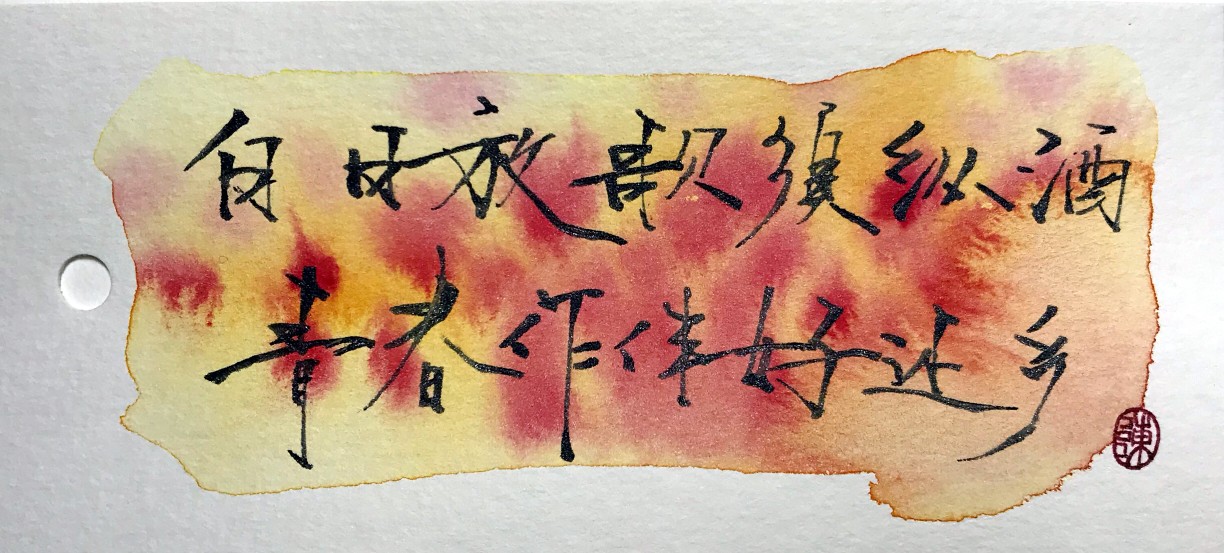 白日放歌须纵酒
青春作伴好还乡
陳